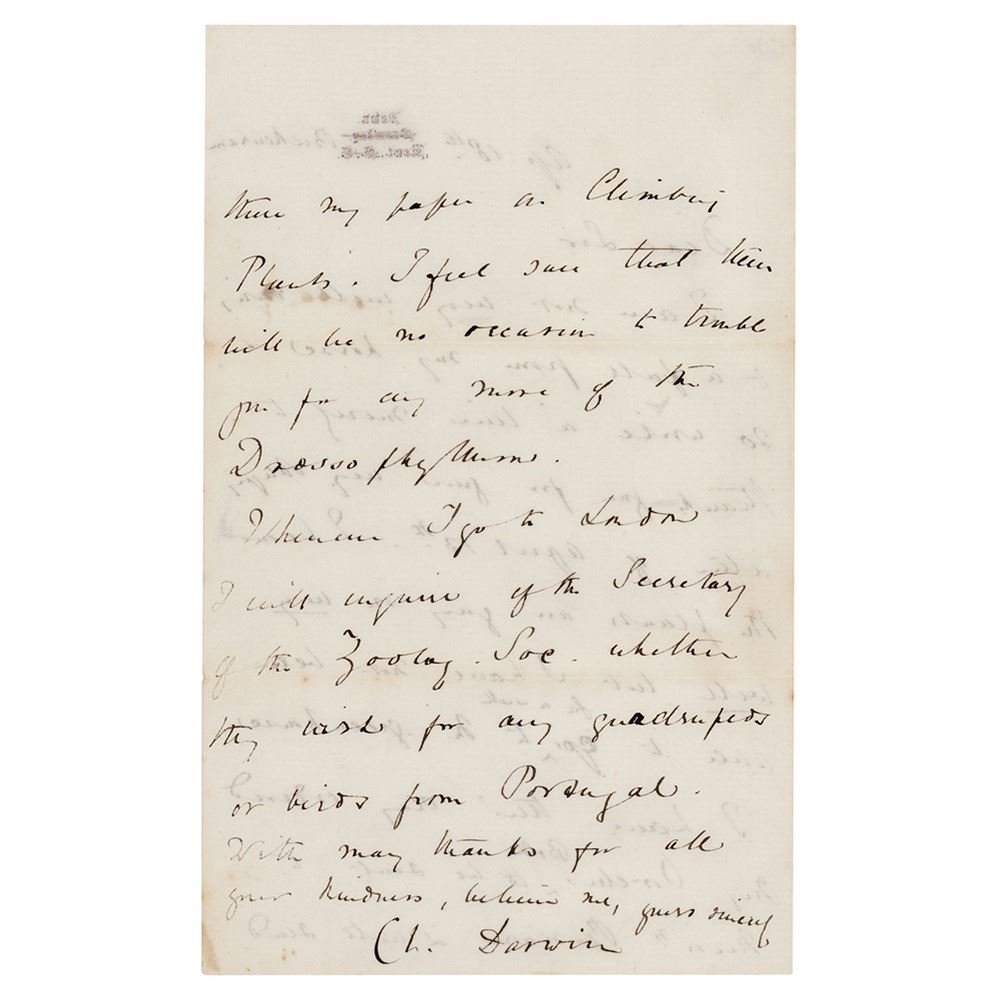 them my paper on Climbing
Plants. I feel sure that there
will be no occasion to trouble
you for any more of the
Drosophyllum.
Whenever I go to London
I will enquire of the Secretary
of the Zoolog. Soc. whether
they wish for any quadrupeds
or birds from Portugal.
With many thanks for all
your kindness, believe me, yours sincerely
Ch. Darwin